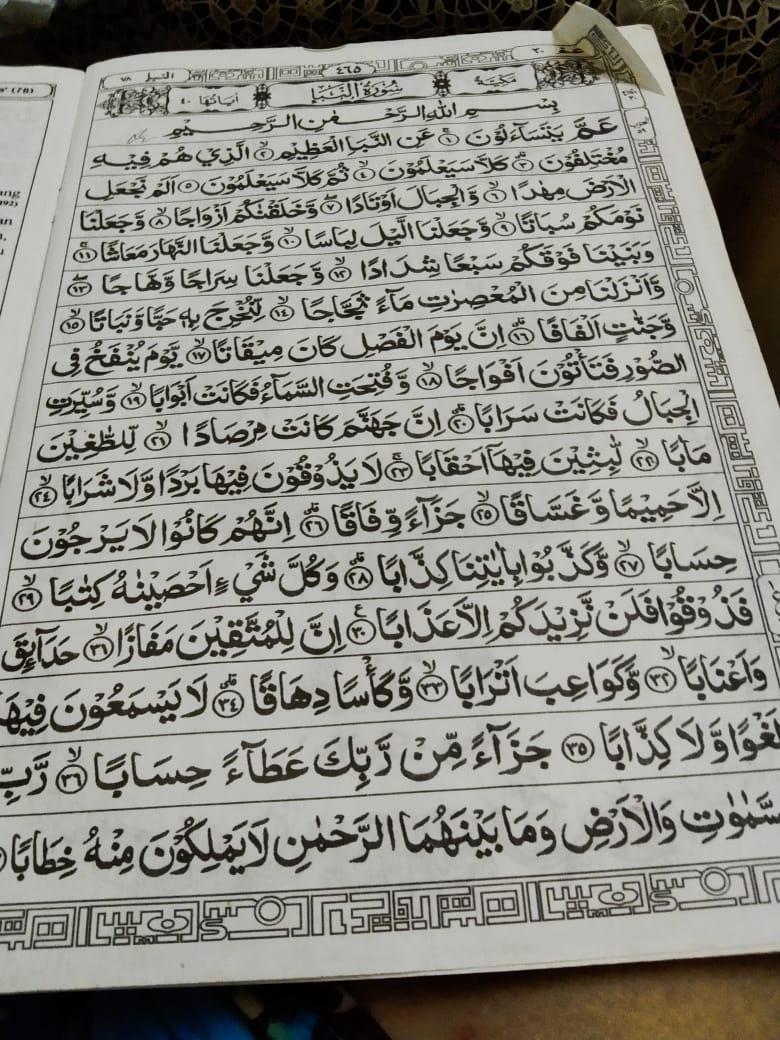 (78)
ang
(192)
an
النبا ٧٨
٤٦٥
عم ٣٠
اٰيَاتُهَا ٤٠
سُوْرَةُ النَّبَاِ
مَكِّيَّةٌ
بِسْمِ اللّٰهِ الرَّحْمٰنِ الرَّحِيْمِ
عَمَّ يَتَسَاۤءَلُوْنَ ۚ ١ عَنِ النَّبَاِ الْعَظِيْمِۙ ٢ الَّذِيْ هُمْ فِيْهِ
مُخْتَلِفُوْنَۗ ٣ كَلَّا سَيَعْلَمُوْنَۙ ٤ ثُمَّ كَلَّا سَيَعْلَمُوْنَ ٥ اَلَمْ نَجْعَلِ
الْاَرْضَ مِهٰدًاۙ ٦ وَّالْجِبَالَ اَوْتَادًاۖ ٧ وَّخَلَقْنٰكُمْ اَزْوَاجًاۙ ٨ وَّجَعَلْنَا
نَوْمَكُمْ سُبَاتًاۙ ٩ وَّجَعَلْنَا الَّيْلَ لِبَاسًاۙ ١٠ وَّجَعَلْنَا النَّهَارَ مَعَاشًاۚ ١١
وَبَنَيْنَا فَوْقَكُمْ سَبْعًا شِدَادًاۙ ١٢ وَّجَعَلْنَا سِرَاجًا وَّهَّاجًاۖ ١٣
وَّاَنْزَلْنَا مِنَ الْمُعْصِرٰتِ مَاۤءً ثَجَّاجًاۙ ١٤ لِّنُخْرِجَ بِهٖ حَبًّا وَّنَبَاتًاۙ ١٥
وَّجَنّٰتٍ اَلْفَافًاۗ ١٦ اِنَّ يَوْمَ الْفَصْلِ كَانَ مِيْقَاتًاۙ ١٧ يَّوْمَ يُنْفَخُ فِى
الصُّوْرِ فَتَأْتُوْنَ اَفْوَاجًاۙ ١٨ وَّفُتِحَتِ السَّمَاۤءُ فَكَانَتْ اَبْوَابًاۙ ١٩ وَّسُيِّرَتِ
الْجِبَالُ فَكَانَتْ سَرَابًاۗ ٢٠ اِنَّ جَهَنَّمَ كَانَتْ مِرْصَادًاۙ ٢١ لِّلطّٰغِيْنَ
مَاٰبًاۙ ٢٢ لّٰبِثِيْنَ فِيْهَآ اَحْقَابًاۚ ٢٣ لَا يَذُوْقُوْنَ فِيْهَا بَرْدًا وَّلَا شَرَابًاۙ ٢٤
اِلَّا حَمِيْمًا وَّغَسَّاقًاۙ ٢٥ جَزَاۤءً وِّفَاقًاۗ ٢٦ اِنَّهُمْ كَانُوْا لَا يَرْجُوْنَ
حِسَابًاۙ ٢٧ وَّكَذَّبُوْا بِاٰيٰتِنَا كِذَّابًاۗ ٢٨ وَكُلَّ شَيْءٍ اَحْصَيْنٰهُ كِتٰبًاۙ ٢٩
فَذُوْقُوْا فَلَنْ نَّزِيْدَكُمْ اِلَّا عَذَابًاۚ ٣٠ اِنَّ لِلْمُتَّقِيْنَ مَفَازًاۙ ٣١ حَدَاۤئِقَ
وَاَعْنَابًاۙ ٣٢ وَّكَوَاعِبَ اَتْرَابًاۙ ٣٣ وَّكَأْسًا دِهَاقًاۗ ٣٤ لَا يَسْمَعُوْنَ فِيْهَا
لَغْوًا وَّلَا كِذَّابًاۚ ٣٥ جَزَاۤءً مِّنْ رَّبِّكَ عَطَاۤءً حِسَابًاۙ ٣٦ رَّبِّ
السَّمٰوٰتِ وَالْاَرْضِ وَمَا بَيْنَهُمَا الرَّحْمٰنِ لَا يَمْلِكُوْنَ مِنْهُ خِطَابًا